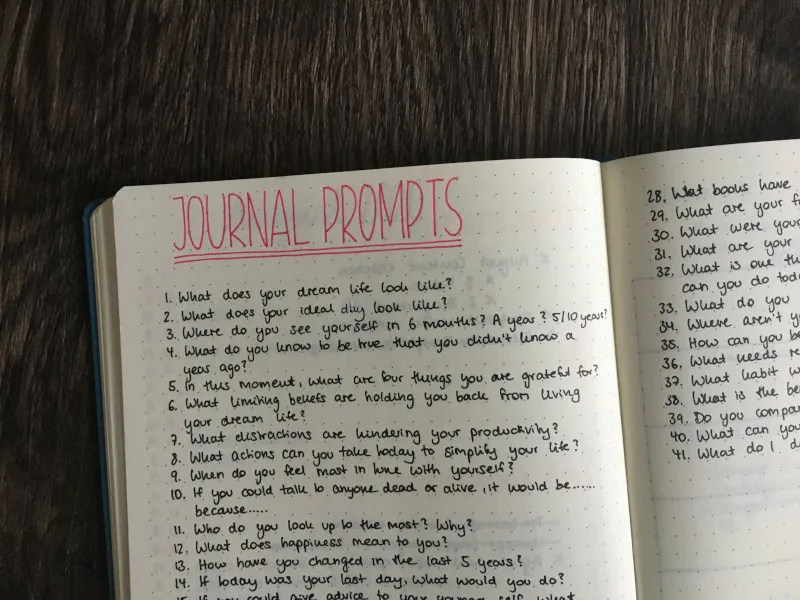 JOURNAL PROMPTS
1. What does your dream life look like?
2. What does your ideal day look like?
3. Where do you see yourself in 6 months? A year? 5/10 years?
4. What do you know to be true that you didn't know a
year ago?
5. In this moment, what are four things you are grateful for?
6. What limiting beliefs are holding you back from living
your dream life?
7. What distractions are hindering your productivity?
8. What actions can you take today to simplify your life?
9. When do you feel most in tune with yourself?
10. If you could talk to anyone dead or alive, it would be......
because.....
11. Who do you look up to the most? Why?
12. What does happiness mean to you?
13. How have you changed in the last 5 years?
14. If today was your last day, what would you do?
15. If you could give advice to your younger self, what
28. What books have
29. What are your
30. What were your
31. What are your
32. What is one
can you do
33. What do you
34. Where aren't
35. How can you
36. What needs
37. What habit
38. What is the
39. Do you
40. What can
41. What do I